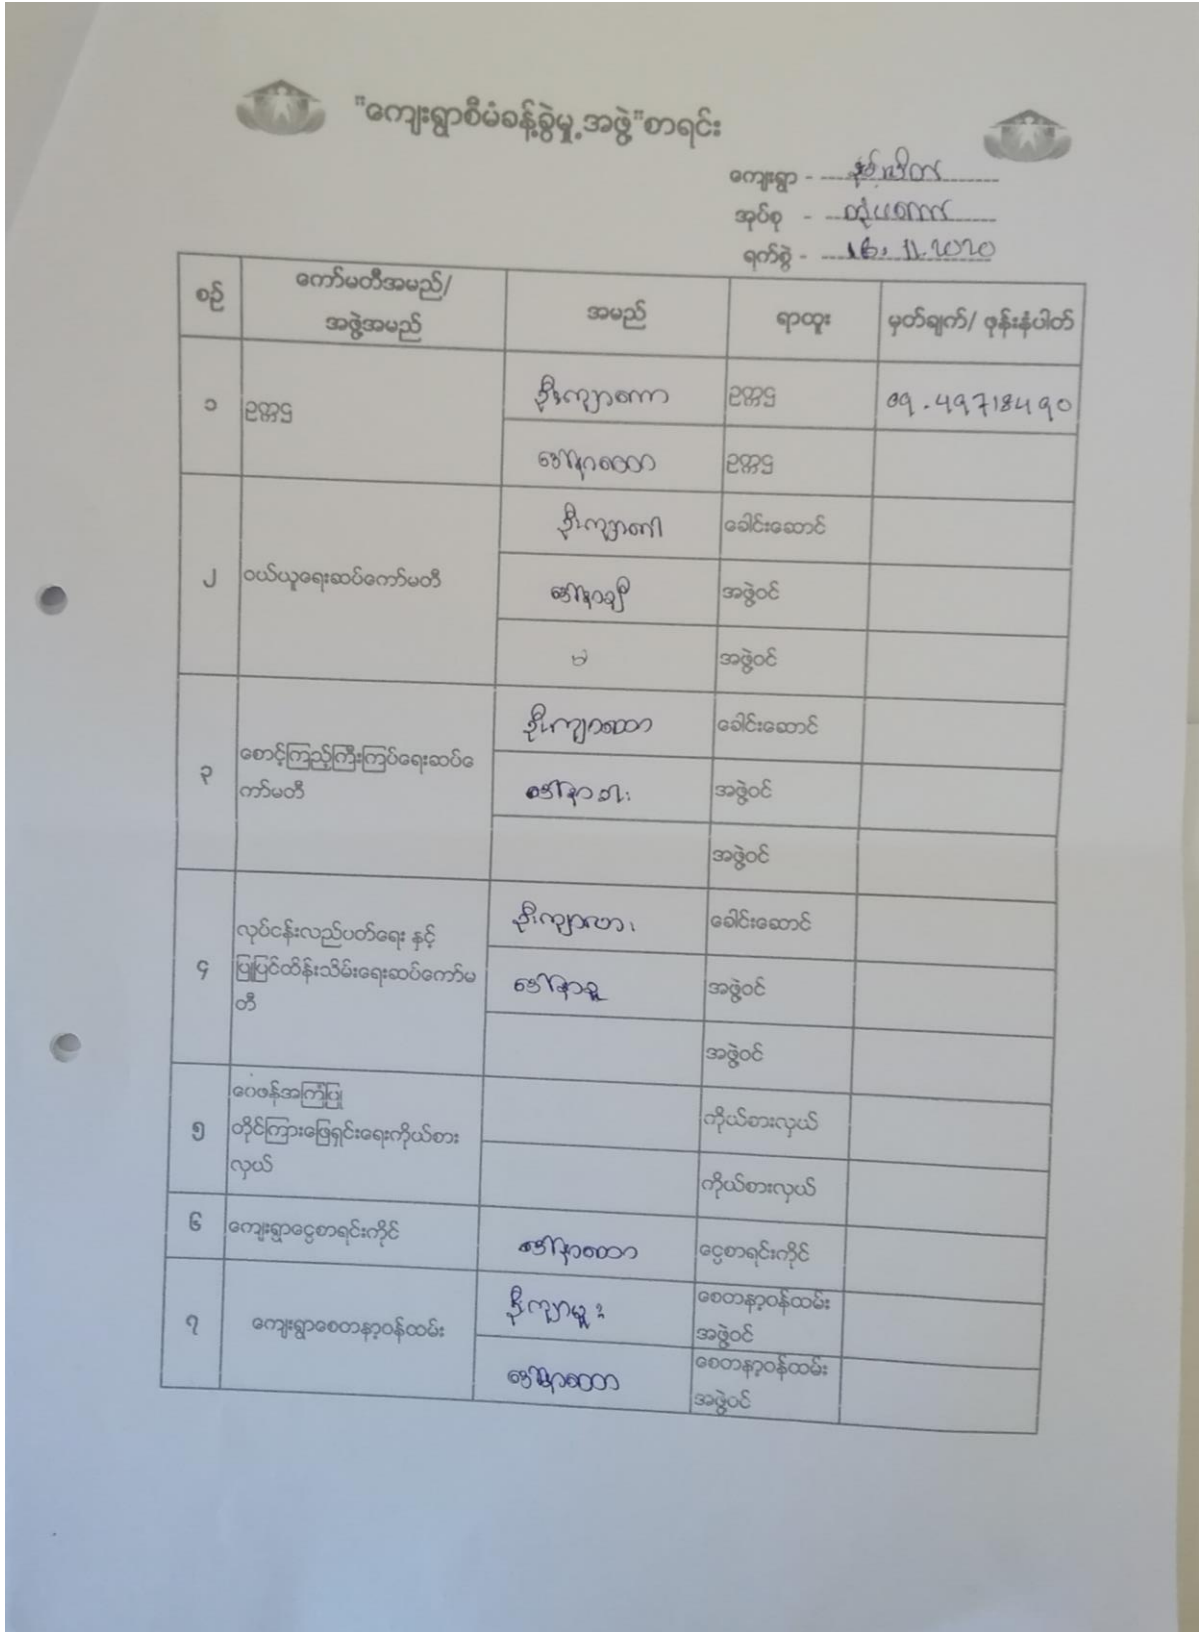 "ကျေးရွာစီမံခန့်ခွဲမှု့အဖွဲ့"စာရင်း
ကျေးရွာ -
အုပ်စု -
ရက်စွဲ - 16. 11. 2020
စဉ် ကော်မတီအမည်/ အမည် ရာထူး မှတ်ချက်/ ဖုန်းနံပါတ်
အဖွဲ့အမည်
၁ ဥက္ကဌ ဦးကျာကော ဥက္ကဌ 09.49718490
ဒေါ်နာထော ဥက္ကဌ
၂ ဝယ်ယူရေးဆပ်ကော်မတီ ဦးကျာတေါ ခေါင်းဆောင်
ဒေါ်နာချီ အဖွဲ့ဝင်
အဖွဲ့ဝင်
၃ စောင့်ကြည့်ကြီးကြပ်ရေးဆပ်ကေ ဦးကျာထော ခေါင်းဆောင်
ာ်မတီ ဒေါ်နာခါး အဖွဲ့ဝင်
အဖွဲ့ဝင်
၄ လုပ်ငန်းလည်ပတ်ရေး နှင့် ဦးကျာလား ခေါင်းဆောင်
ပြုပြင်ထိန်းသိမ်းရေးဆပ်ကော်မ ဒေါ်နာခူ အဖွဲ့ဝင်
တီ အဖွဲ့ဝင်
၅ ဝေဖန်အကြံပြု ကိုယ်စားလှယ်
တိုင်ကြားဖြေရှင်းရေးကိုယ်စား
လှယ် ကိုယ်စားလှယ်
၆ ကျေးရွာငွေစာရင်းကိုင် ဒေါ်နာထော ငွေစာရင်းကိုင်
၇ ကျေးရွာစေတနာ့ဝန်ထမ်း ဦးကျာမူး စေတနာ့ဝန်ထမ်း
အဖွဲ့ဝင်
ဒေါ်နာထော စေတနာ့ဝန်ထမ်း
အဖွဲ့ဝင်